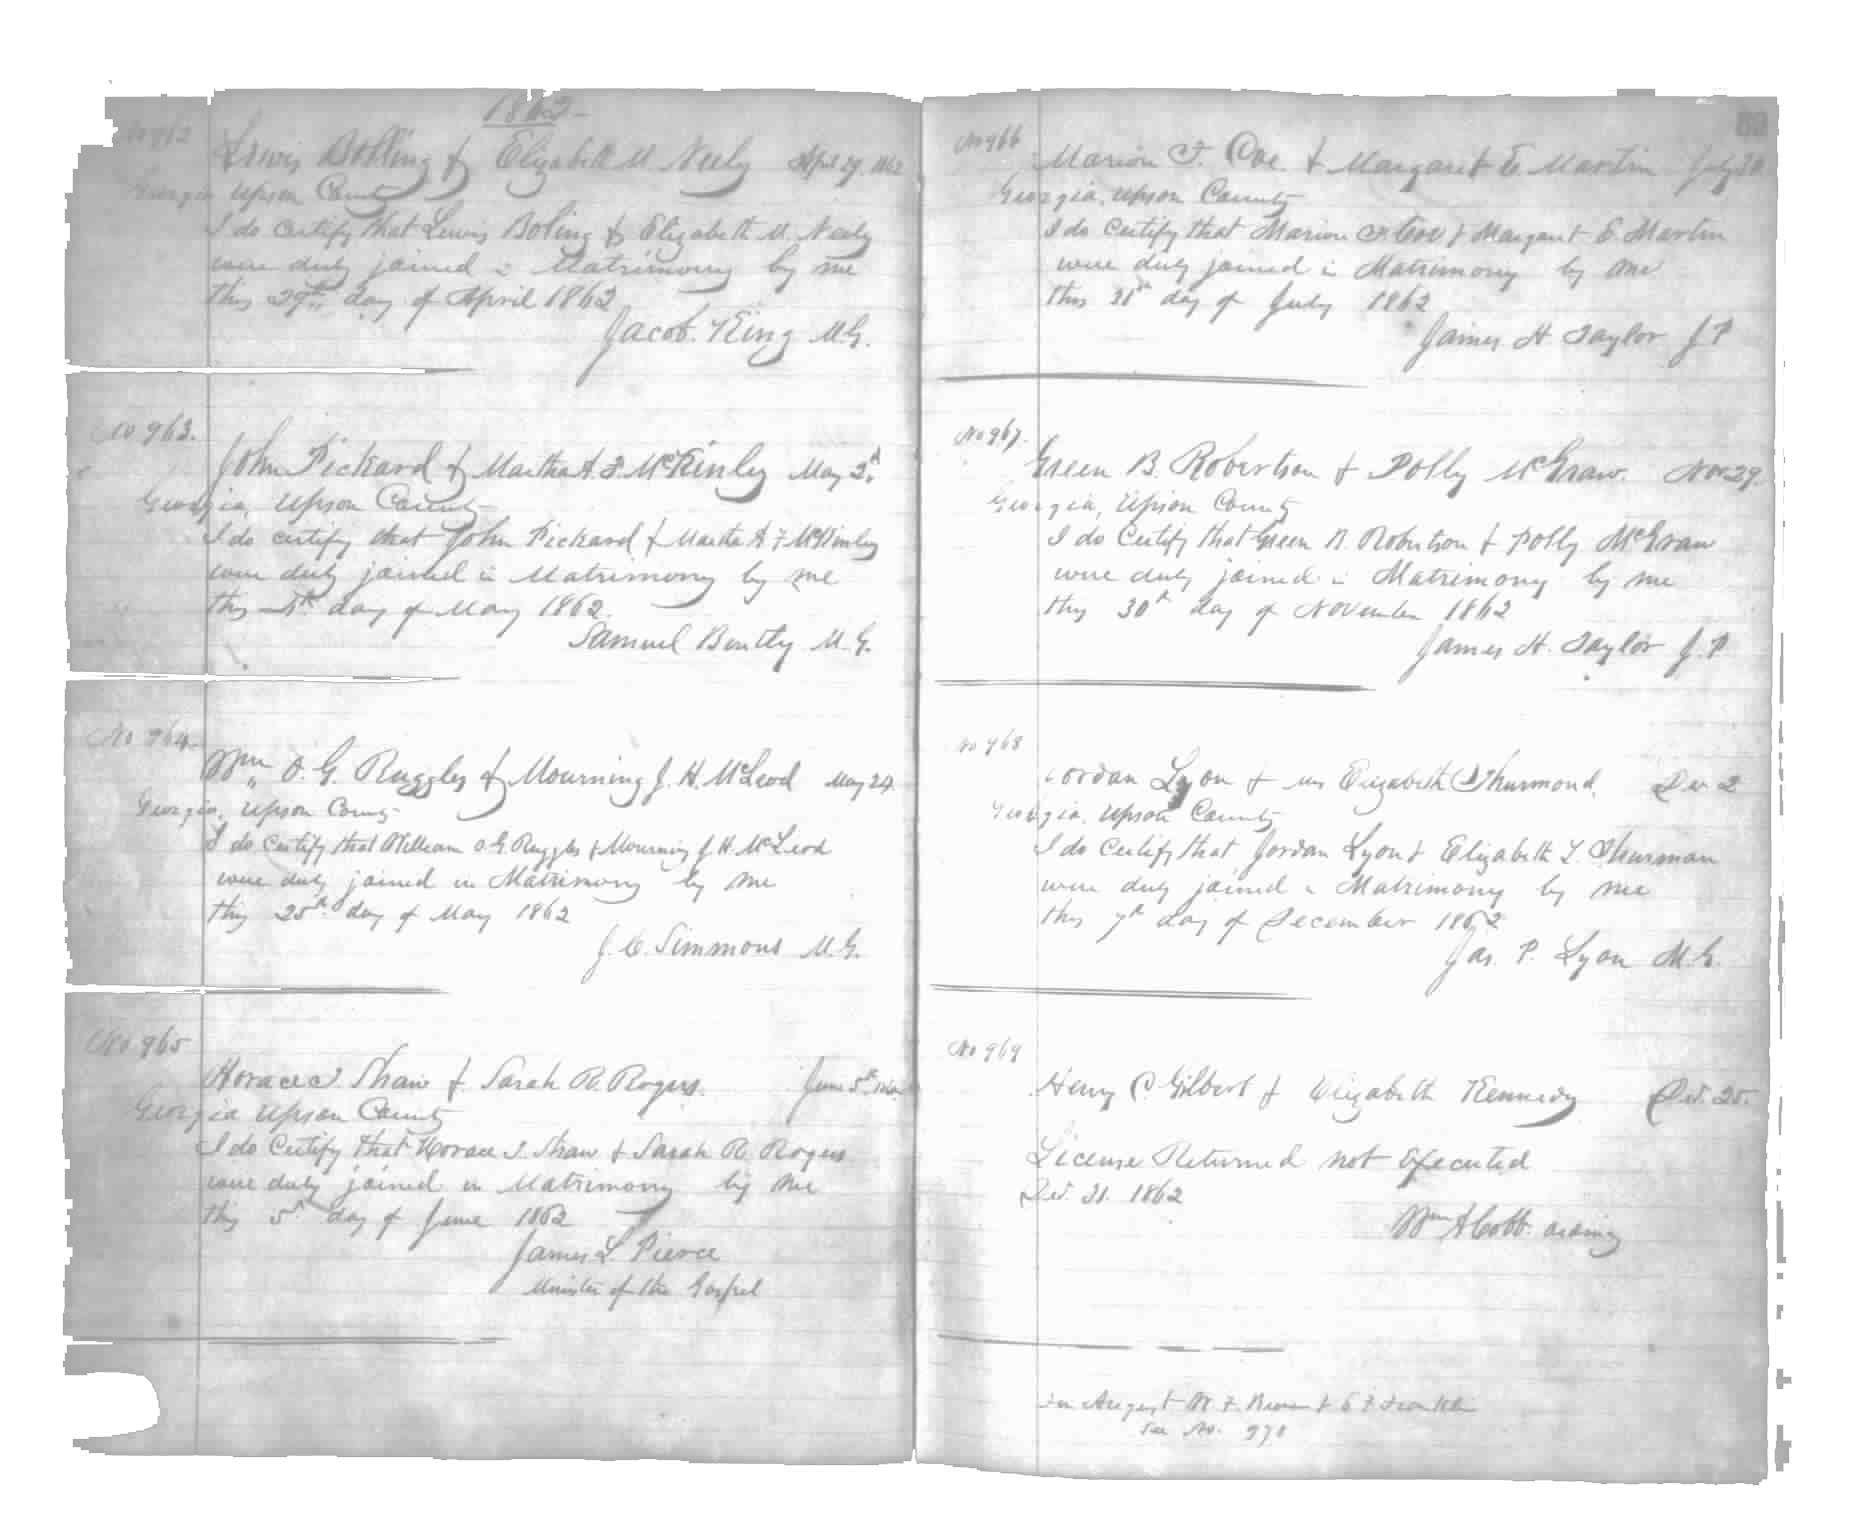 1862
No 962
Lewis Bolling & Elizabeth M. Neely April 29. 1862
Georgia Upson County
I do certify that Lewis Boling & Elizabeth M. Neely
were duly joined in Matrimony by me
this 29th day of April 1862
Jacob. King M.G.
No 963.
John Pickard & Martha A. F. McKinley May 3d
Georgia, Upson County
I do certify that John Pickard & Martha A F McKinley
were duly joined in Matrimony by me
this day of May 1862.
Samuel Bently M.G.
No 964
Wm O. G. Ruggles & Mourning J. H. McLeod May 24
Georgia, Upson County
I do certify that William O G Ruggles & Mourning J H. McLeod
were duly joined in Matrimony by me
this 25th day of May 1862
J. C. Simmons M.G.
No 965
Horace J. Shaw & Sarah R. Rogers. June 5th 1862
Georgia Upson County
I do Certify that Horace J. Shaw & Sarah R. Rogers
were duly joined in Matrimony by me
this 5th day of June 1862
James L. Pierce
Minister of the Gospel
No 966
Marion F. Coe. & Margaret E. Martin July 30
Georgia, Upson County
I do Certify that Marion F Coe & Margaret E. Martin
were duly joined in Matrimony by me
this 31st day of July 1862
James H Taylor J P
No 967.
Green B. Robertson & Polly McGraw. Nov 29.
Georgia, Upson County
I do Certify that Green B. Robertson & Polly McGraw
were duly joined in Matrimony by me
this 30th day of November 1862
James H. Taylor J. P.
No 968
Jordan Lyon & Elizabeth Thurmond. Dec 2
Georgia, Upson County
I do Certify that Jordan Lyon & Elizabeth Thurman
were duly joined in Matrimony by me
this 7th day of December 1862
Jas. P. Lyon M.G.
No 969
Henry C. Gilbert & Elizabeth Kennedy Dec. 25.
License Returned not Executed
Dec. 31. 1862
Wm A Cobb. ordiny
For August W. F. & F Franklin
See No. 970